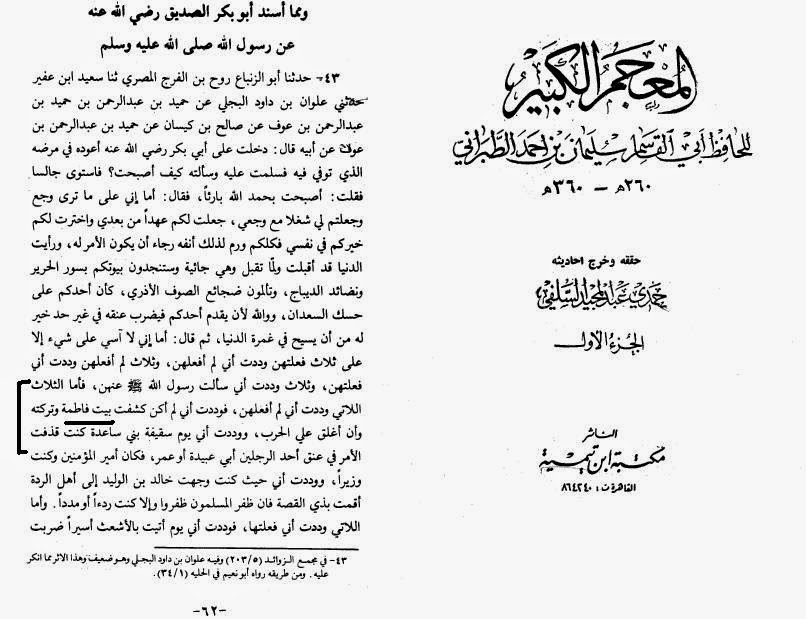 المعجم الكبير
للحافظ أبي القاسم سليمان بن أحمد الطبراني
٢٦٠هـ - ٣٦٠هـ
حققه وخرج احاديثه
حمدي عبد المجيد السلفي
الجزء الأول
الناشر
مكتبة ابن تيمية
القاهرة ت: ٨٦٤٢٤٠
ومما أسند أبو بكر الصديق رضي الله عنه
عن رسول الله صلى الله عليه وسلم
٤٣- حدثنا أبو الزنباع روح بن الفرج المصري ثنا سعيد ابن عفير
حدثني علوان بن داود البجلي عن حميد بن عبدالرحمن بن حميد بن
عبدالرحمن بن عوف عن صالح بن كيسان عن حميد بن عبدالرحمن بن
عوف عن أبيه قال: دخلت على أبي بكر رضي الله عنه أعوده في مرضه
الذي توفي فيه فسلمت عليه وسألته كيف أصبحت؟ فاستوى جالسا
فقلت: أصبحت بحمد الله بارئاً، فقال: أما إني على ما ترى وجع
وجعلتم لي شغلا مع وجعي، جعلت لكم عهداً من بعدي واخترت لكم
خيركم في نفسي فكلكم ورم لذلك أنفه رجاء أن يكون الأمر له، ورأيت
الدنيا قد أقبلت ولمّا تقبل وهي جائية وستنجدون بيوتكم بسور الحرير
ونضائد الديباج، وتألمون ضجائع الصوف الأذري، كأن أحدكم على
حسك السعدان، ووالله لأن يقدم أحدكم فيضرب عنقه في غير حد خير
له من أن يسيح في غمرة الدنيا، ثم قال: أما إني لا آسي على شيء إلا
على ثلاث فعلتهن وددت أني لم أفعلهن، وثلاث لم أفعلهن وددت أني
فعلتهن، وثلاث وددت أني سألت رسول الله ﷺ عنهن، فأما الثلاث
اللاتي وددت أني لم أفعلهن، فوددت أني لم أكن كشفت بيت فاطمة وتركته
وأن أغلق علي الحرب، ووددت أني يوم سقيفة بني ساعدة كنت قذفت
الأمر في عنق أحد الرجلين أبي عبيدة أو عمر، فكان أمير المؤمنين وكنت
وزيراً، ووددت أني حيث كنت وجهت خالد بن الوليد إلى أهل الردة
أقمت بذي القصة فان ظفر المسلمون ظفروا وإلا كنت ردءاً أو مدداً. وأما
اللاتي وددت أني فعلتها، فوددت أني يوم أتيت بالأشعث أسيراً ضربت
٤٣- في مجمع الزوائد (٢٠٣/٥) وفيه علوان بن داود البجلي وهو ضعيف وهذا الاثر مما انكر
عليه. ومن طريقه رواه أبو نعيم في الحليه (٣٤/١).
-٦٢-